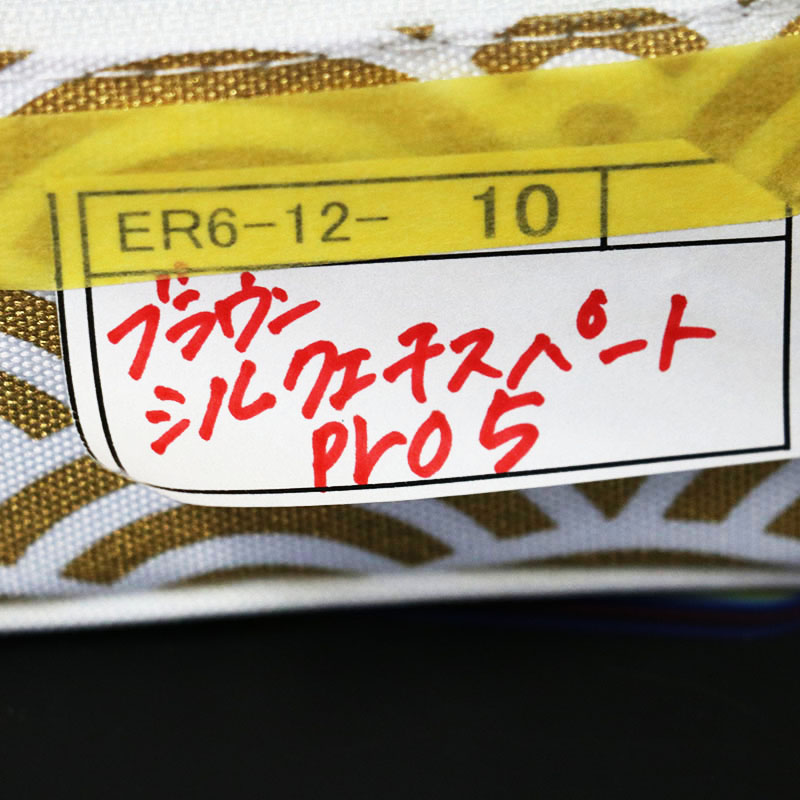 ER6-12- 10
ブラウン
シルクェチスペート
Pro 5